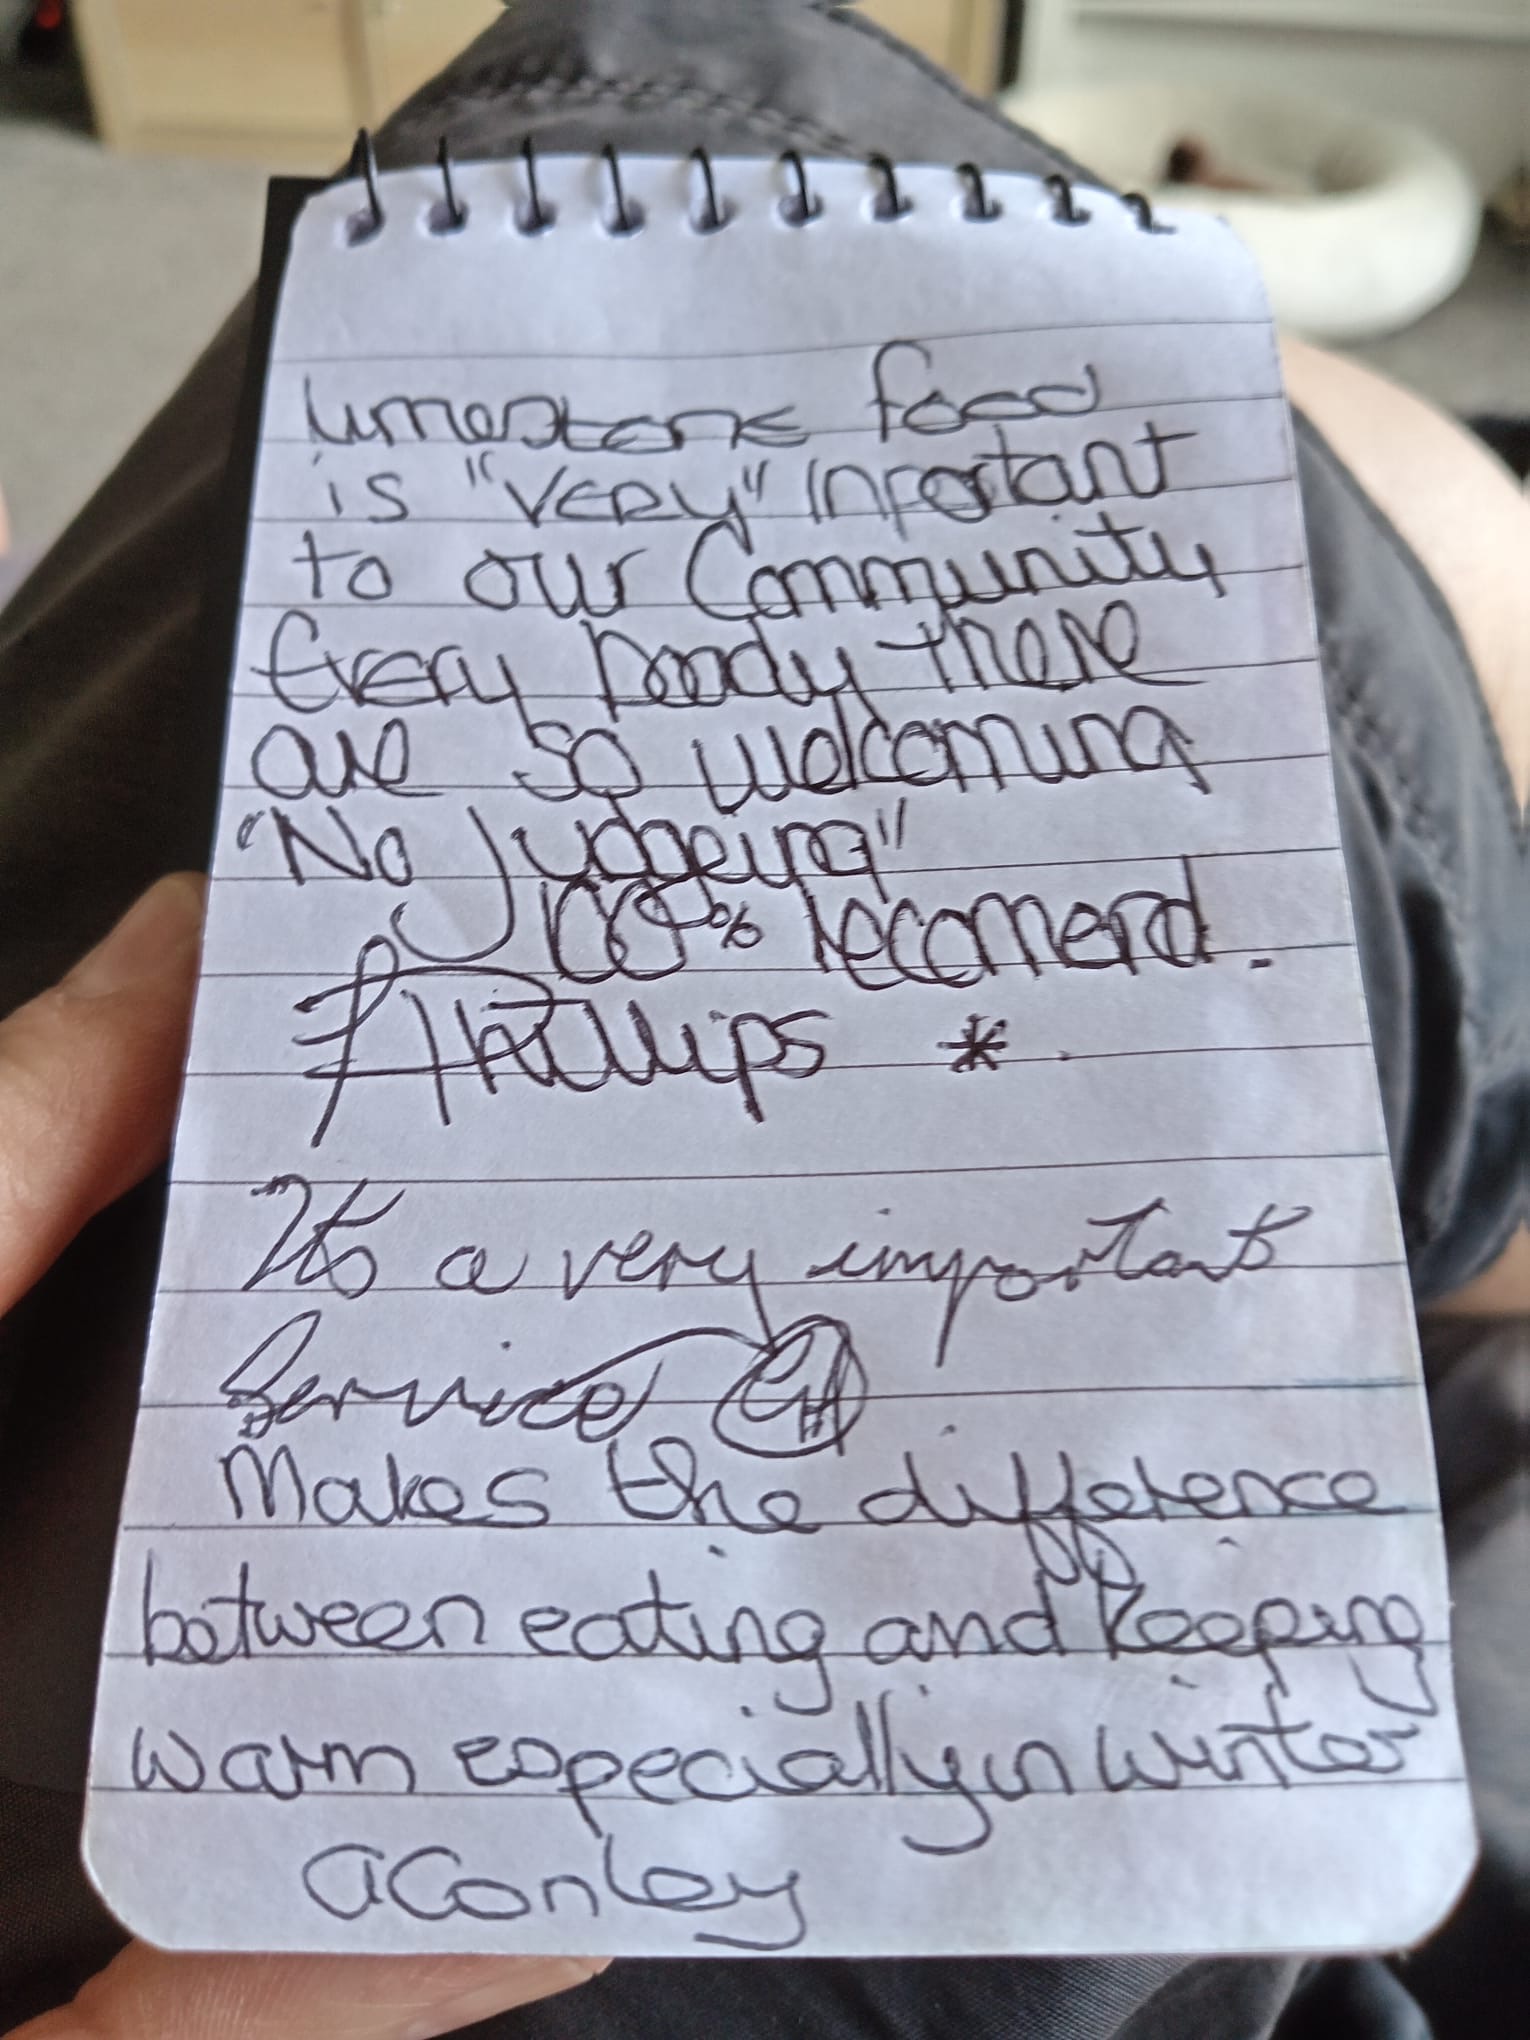 Limestone food
is "very" inportant
to our Community
Every boody there
are so welcoming
"No Judgeing"
100% recomend.
Phillips *
It's a very important
Service
Makes the difference
between eating and keeping
warm especially in winter
a Conley